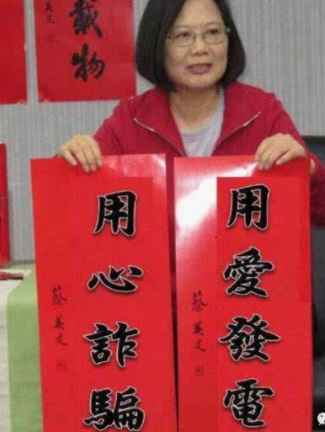 載物
用愛發電
蔡英文
用心詐騙
蔡英文